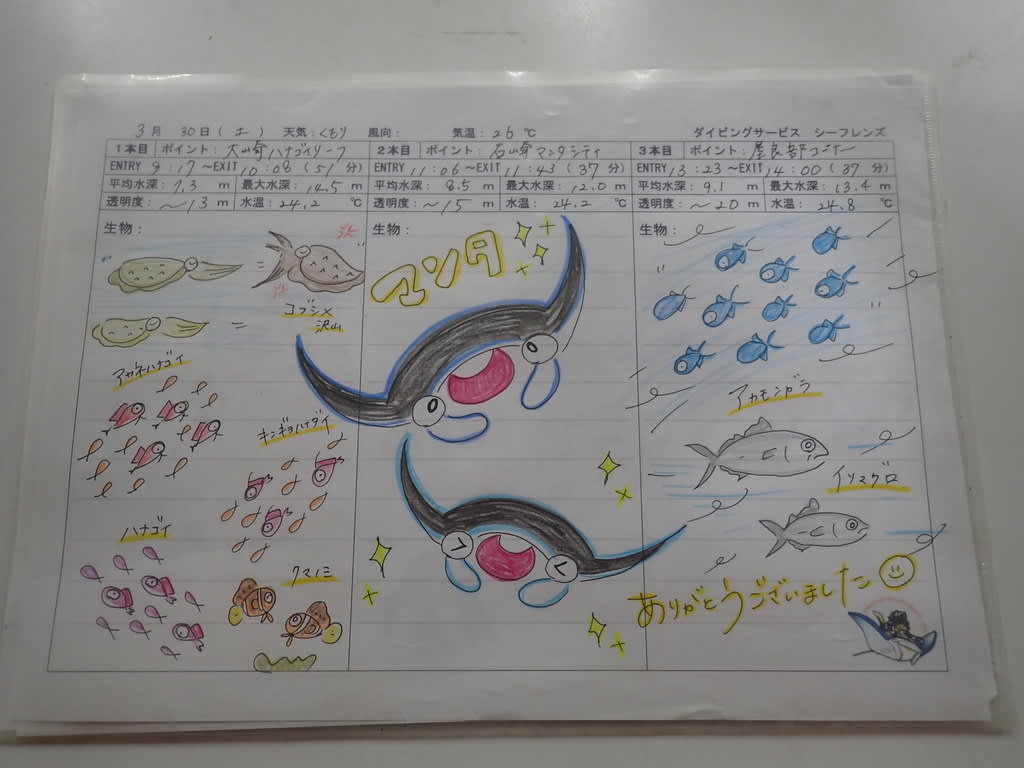 3月 30日(土) 天気:くもり 風向: 気温:26℃ ダイビングサービス シーフレンズ
1本目 ポイント:大崎ハナゴイリーフ
ENTRY 9:17～EXIT 10:08(51分)
平均水深:7.3 m 最大水深:14.5 m
透明度:～13 m 水温:24.2 ℃
生物:
コブシメ
沢山
アカネハナゴイ
キンギョハナダイ
ハナゴイ
クマノミ
2本目 ポイント:石崎マンタシティ
ENTRY 11:06～EXIT 11:43(37分)
平均水深:8.5 m 最大水深:12.0 m
透明度:～15 m 水温:24.2 ℃
生物:
マンタ
3本目 ポイント:屋良部コーナー
ENTRY 13:23～EXIT 14:00(37分)
平均水深:9.1 m 最大水深:13.4 m
透明度:～20 m 水温:24.8 ℃
生物:
アカモンガラ
イソマグロ
ありがとうございました